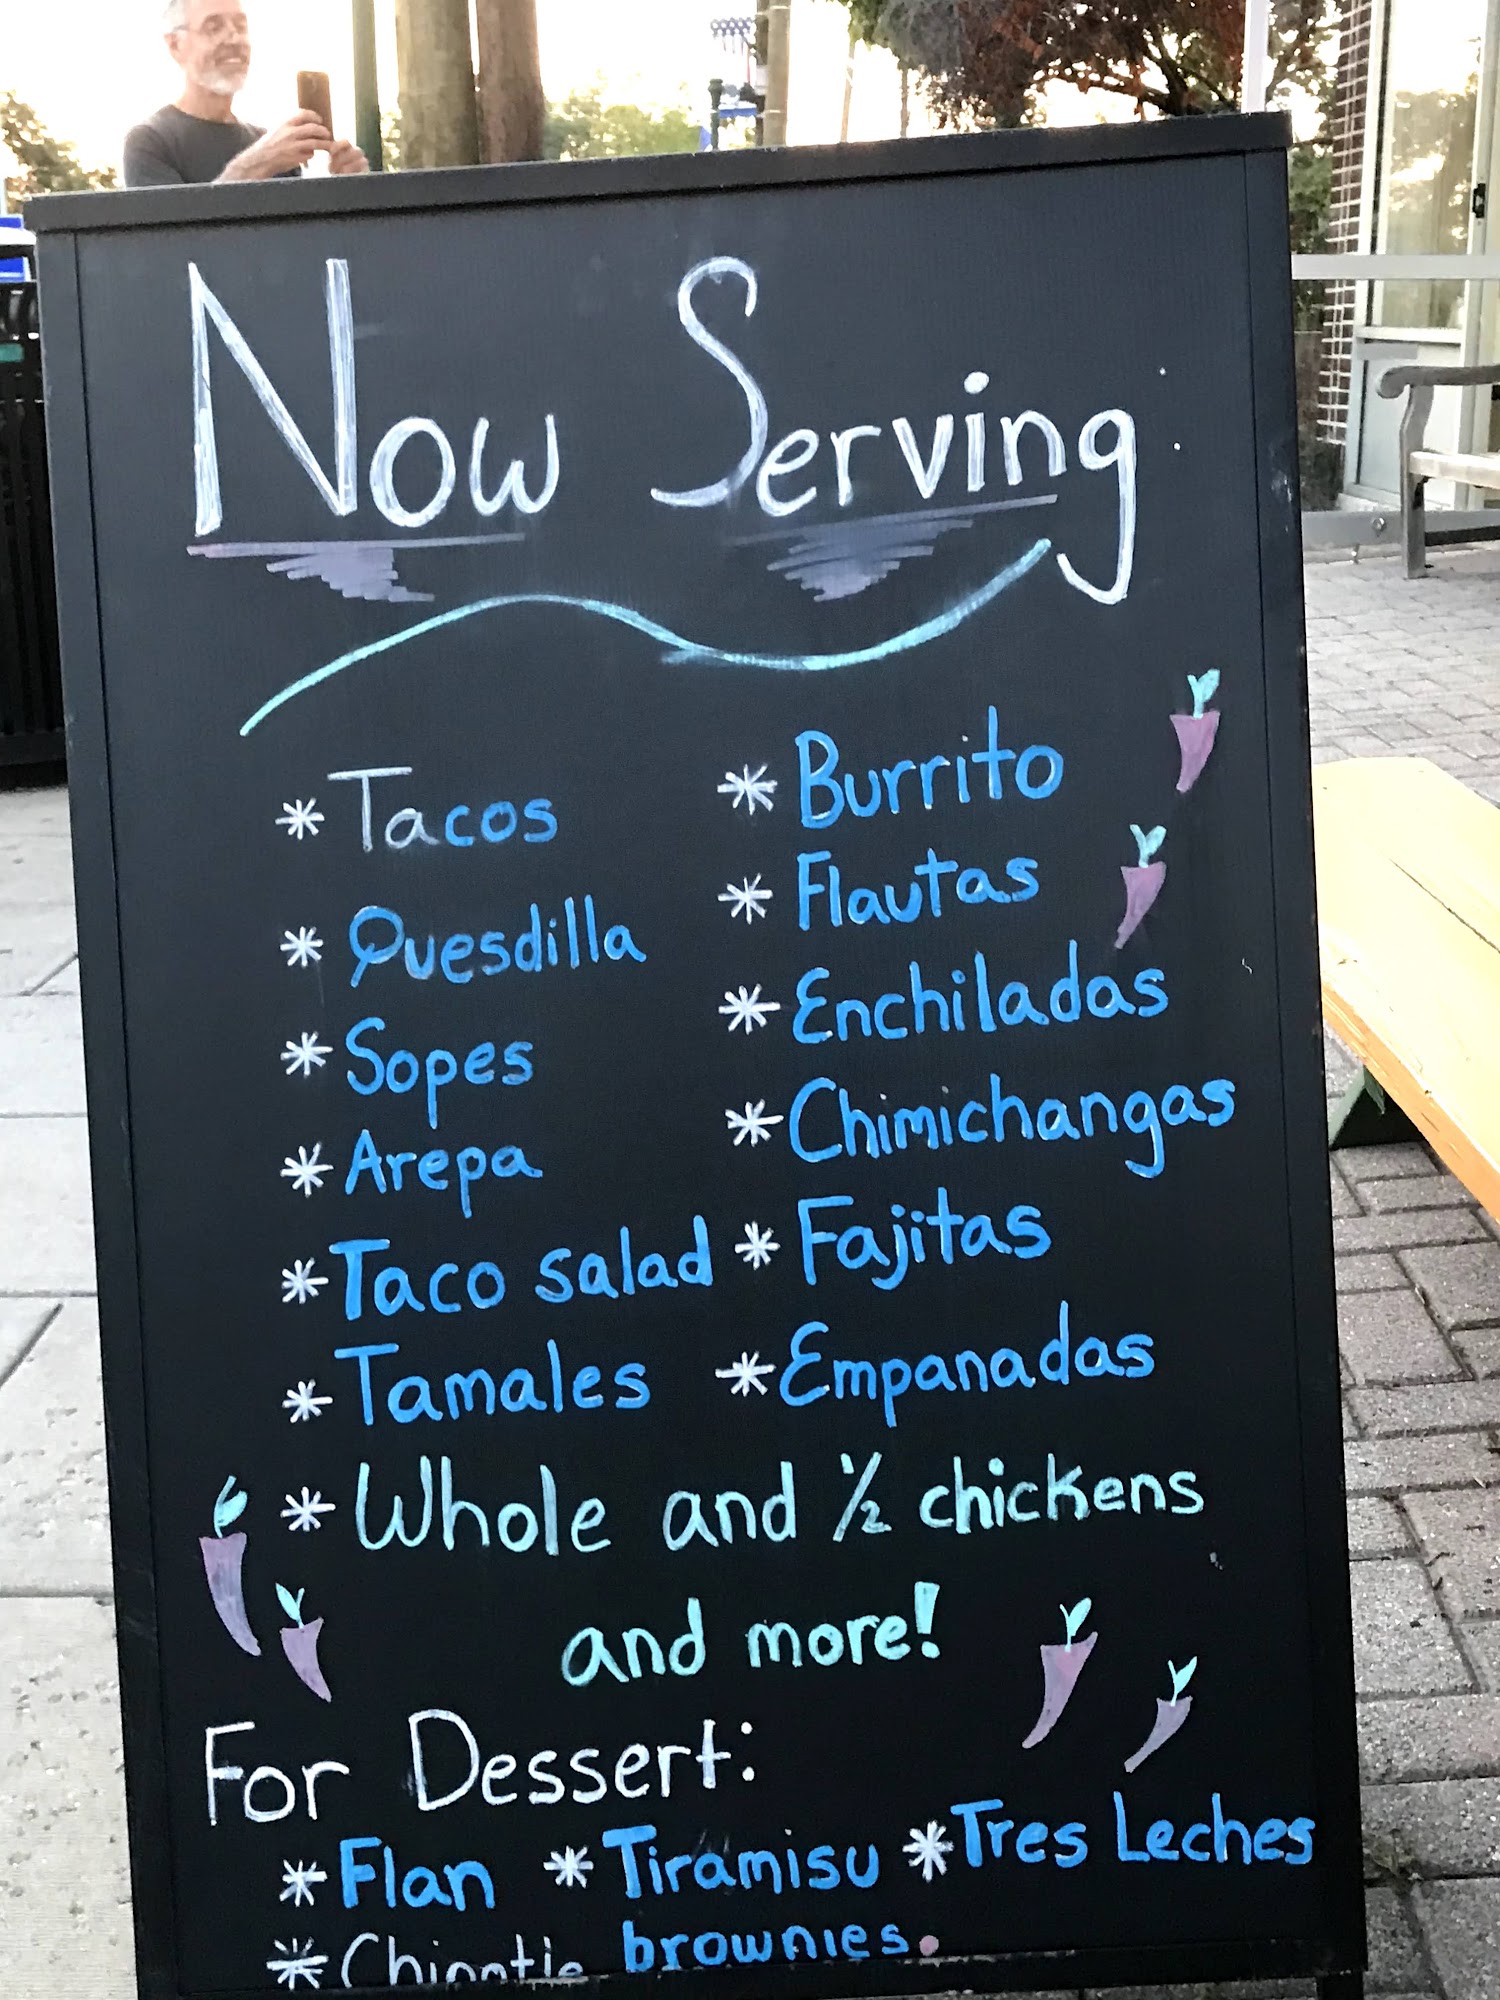 Now Serving:
* Tacos * Burrito
* Quesdilla * Flautas
* Sopes * Enchiladas
* Arepa * Chimichangas
* Taco salad * Fajitas
* Tamales * Empanadas
* Whole and ½ chickens
and more!
For Dessert:
* Flan * Tiramisu * Tres Leches
* Chipotle brownies.